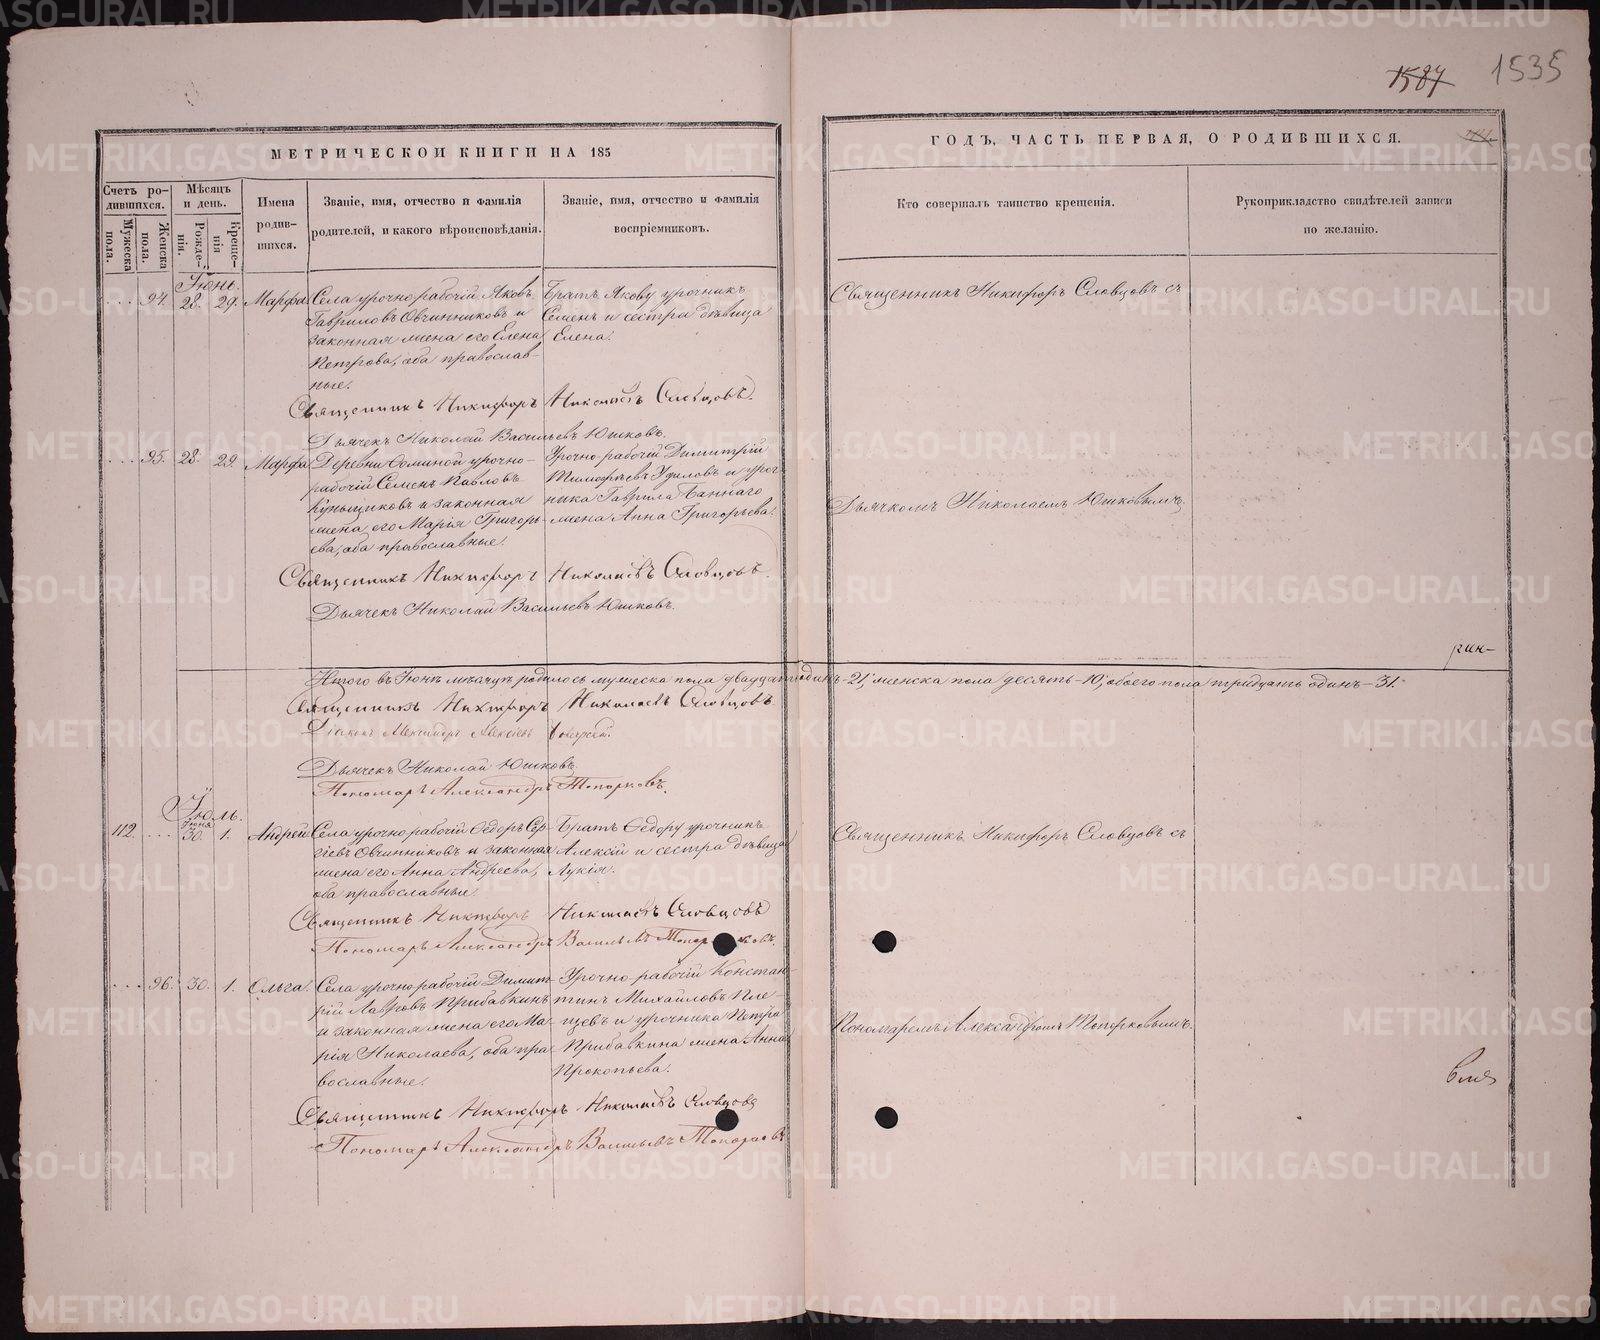 1587 1535
МЕТРИЧЕСКОЙ КНИГИ НА 185
ГОДЪ, ЧАСТЬ ПЕРВАЯ, О РОДИВШИХСЯ.
Счетъ ро-
дившихся.
Мужеска
пола.
Женска
пола.
Мѣсяцъ
и день.
Рожде-
нія.
Креще-
нія
Имена
родив-
шихся.
Званіе, имя, отчество и фамилія
родителей, и какого вѣроисповѣданія.
Званіе, имя, отчество и фамилія
воспріемниковъ.
Кто совершалъ таинство крещенія.
Рукоприкладство свидѣтелей записи
по желанію.
Іюнь.
94. 28. 29. Марфа
Села урочнорабочій Яковъ
Гавриловъ Овчинниковъ и
законная жена его Елена
Петрова, оба православ-
ные.
Братъ Якову урочникъ
Семенъ и сестра дѣвица
Елена.
Священникъ Никифоръ Словцовъ съ
Священникъ Никифоръ Николаевъ Словцовъ.
Дьячекъ Николай Васильевъ Юшковъ.
95. 28. 29. Марфа
Деревни урочно-
рабочій Семенъ Павловъ
и законная
жена его Марія Григорь-
ева, оба православные.
Урочно рабочій Димитрій
Тимофѣевъ и уроч-
ника Гаврила Баннаго
жена Анна Григорьева.
Дьячкомъ Николаемъ Юшковымъ.
Священникъ Никифоръ Николаевъ Словцовъ.
Дьячекъ Николай Васильевъ Юшковъ.
рин-
Итого въ Іюнѣ мѣсяцѣ родилось мужеска пола двадцать одинъ-21, женска пола десять-10, обоего пола тридцать одинъ-31.
Священникъ Никифоръ Николаевъ Словцовъ
Діаконъ Александръ Алексѣевъ
Дьячекъ Николай Юшковъ.
Пономарь Александръ Топорковъ.
Іюль.
Іюня
112. 30. 1. Андрей
Села урочнорабочій Ѳедоръ Сер-
гіевъ Овчинниковъ и законная
жена его Анна Андреева,
оба православные.
Братъ Ѳедору урочникъ
Алексій и сестра дѣвица
Лукія.
Священникъ Никифоръ Словцовъ съ
Священникъ Никифоръ Николаевъ Словцовъ
Пономарь Александръ Васильевъ Топорковъ.
96. 30. 1. Ольга.
Села урочнорабочій Димит-
рій Лавровъ Прибавкинъ
и законная жена его Ма-
рія Николаева, оба пра-
вославные.
Урочно рабочій Констан-
тинъ Михайловъ Пле-
щевъ и урочника Петра
Прибавкина жена Анна
Прокопьева.
Пономаремъ Александромъ Топорковымъ.
Священникъ Никифоръ Николаевъ Словцовъ
Пономарь Александръ Васильевъ Топорковъ
METRIKI.GASO-URAL.RU